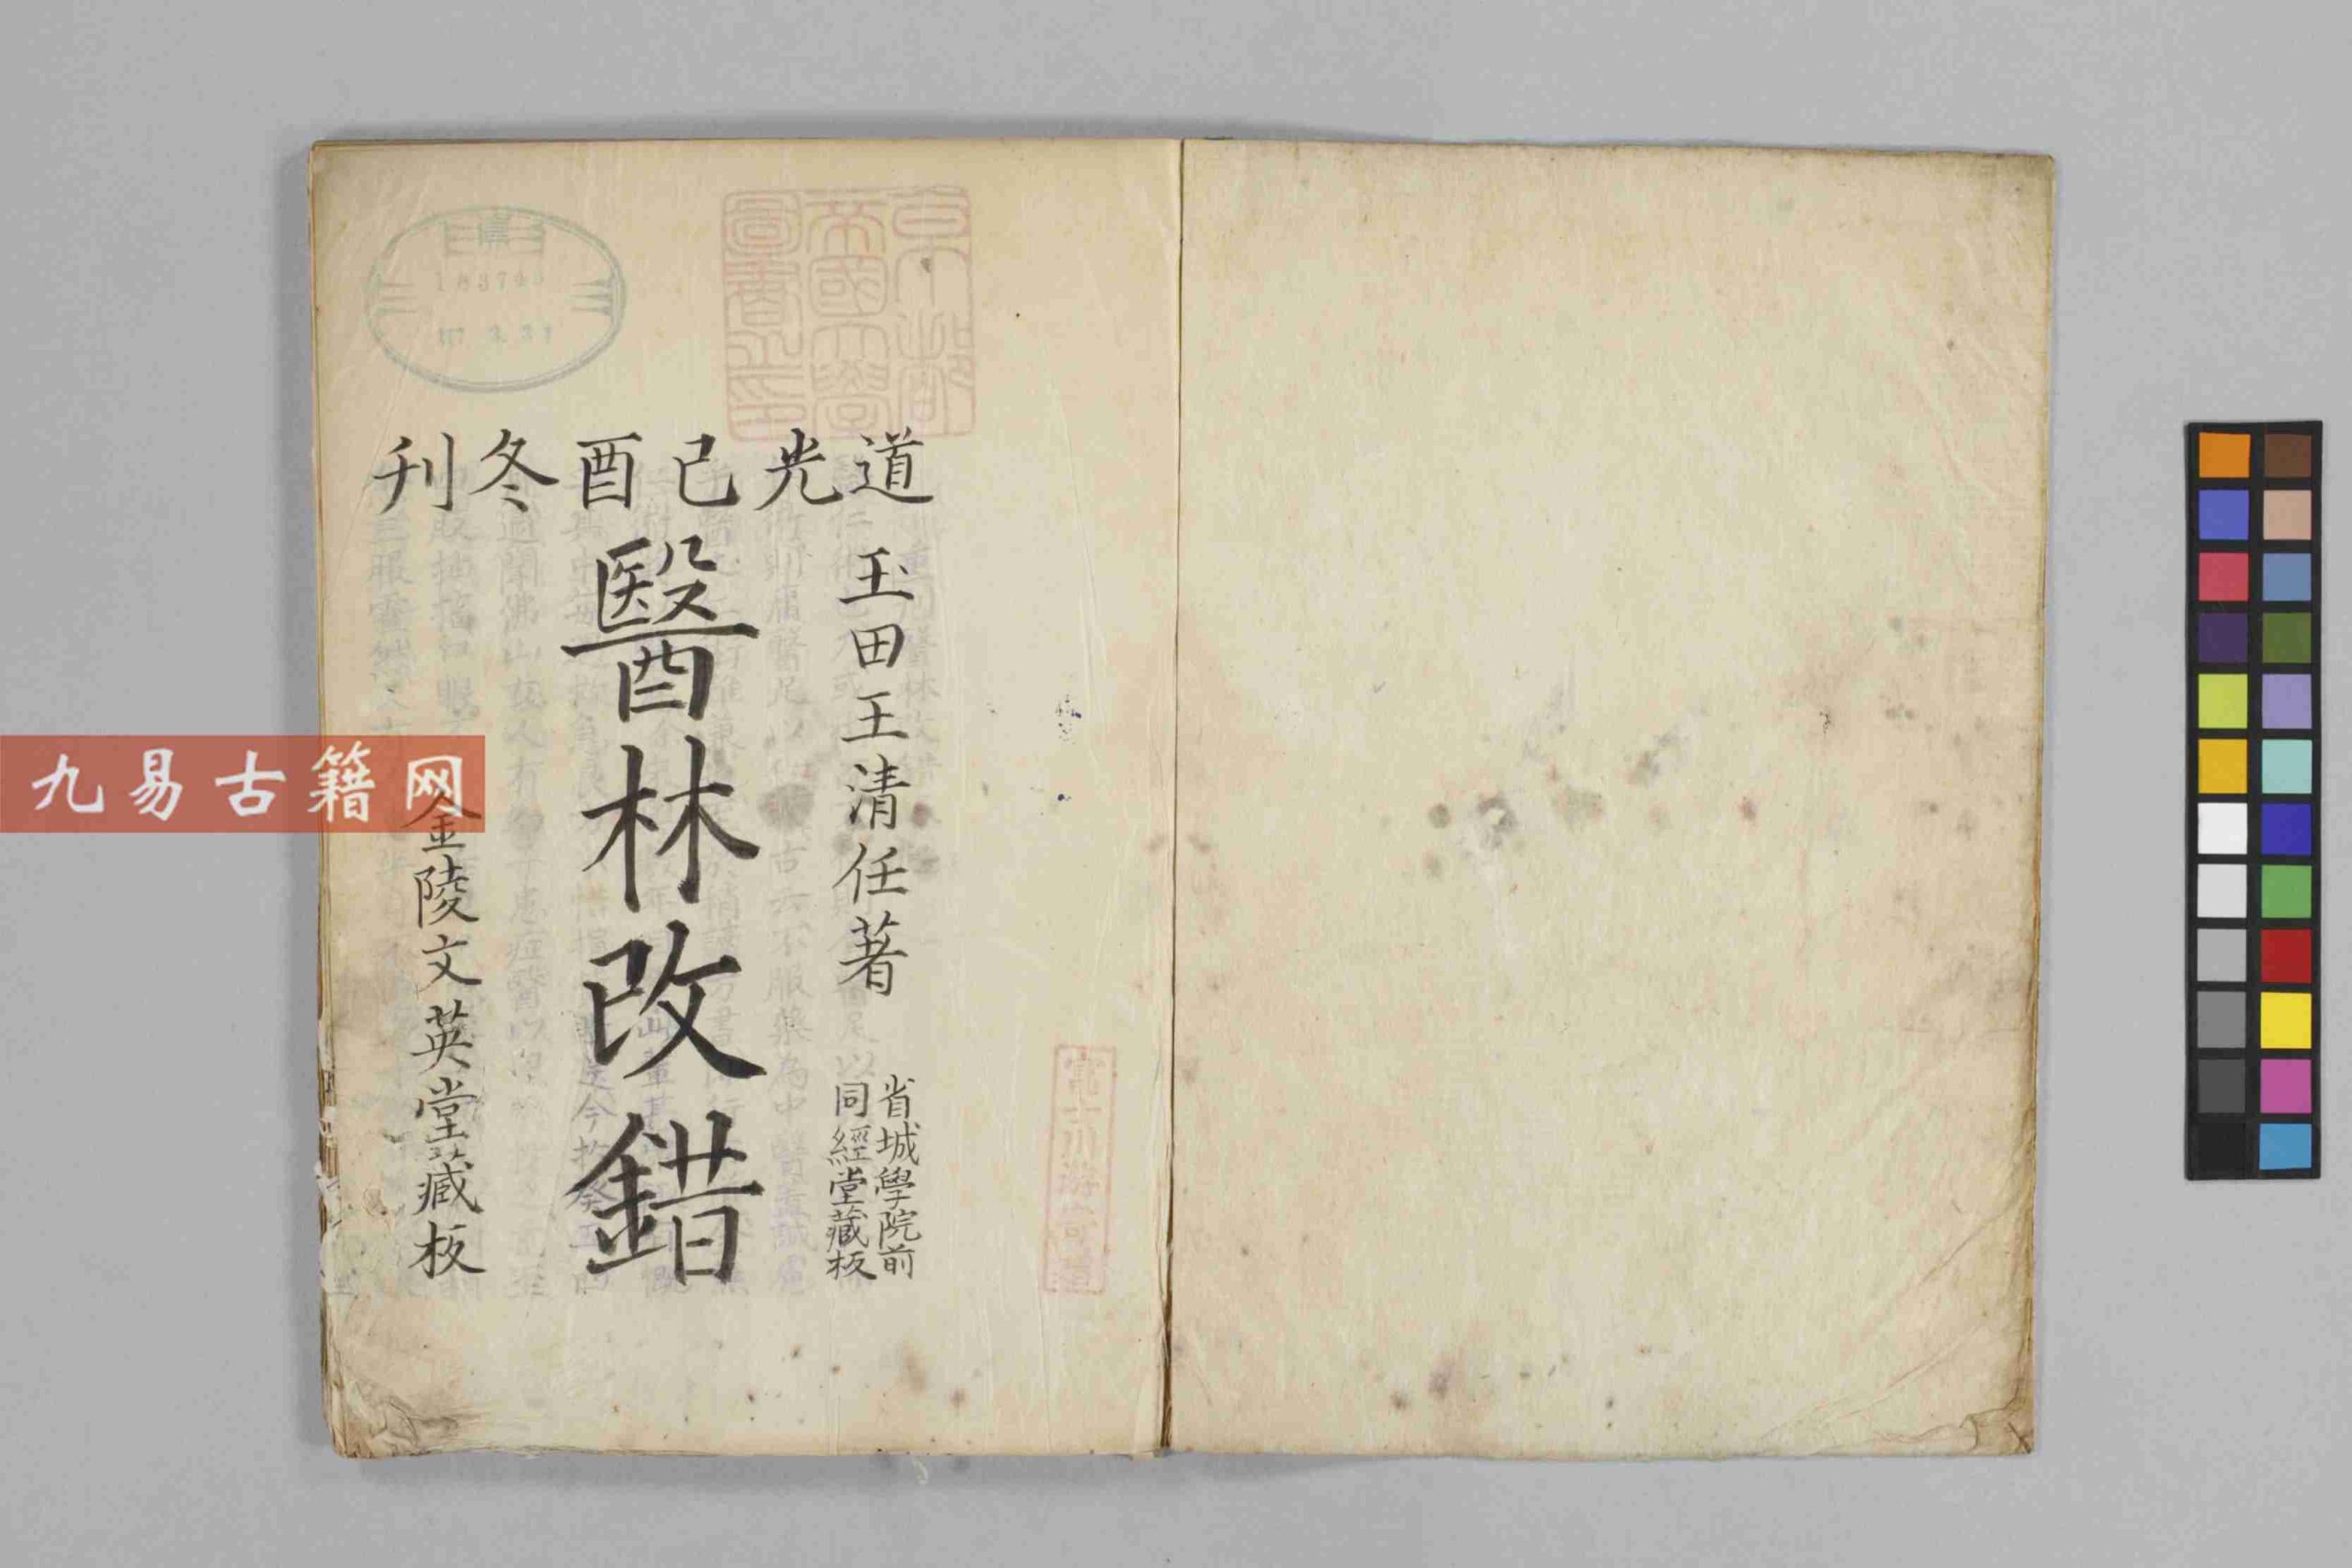 道光己酉冬刊
玉田王清任著
省城學院前
同經堂藏板
醫林改錯
金陵文英堂藏板
京都
帝國大學
圖書之印
九易古籍网